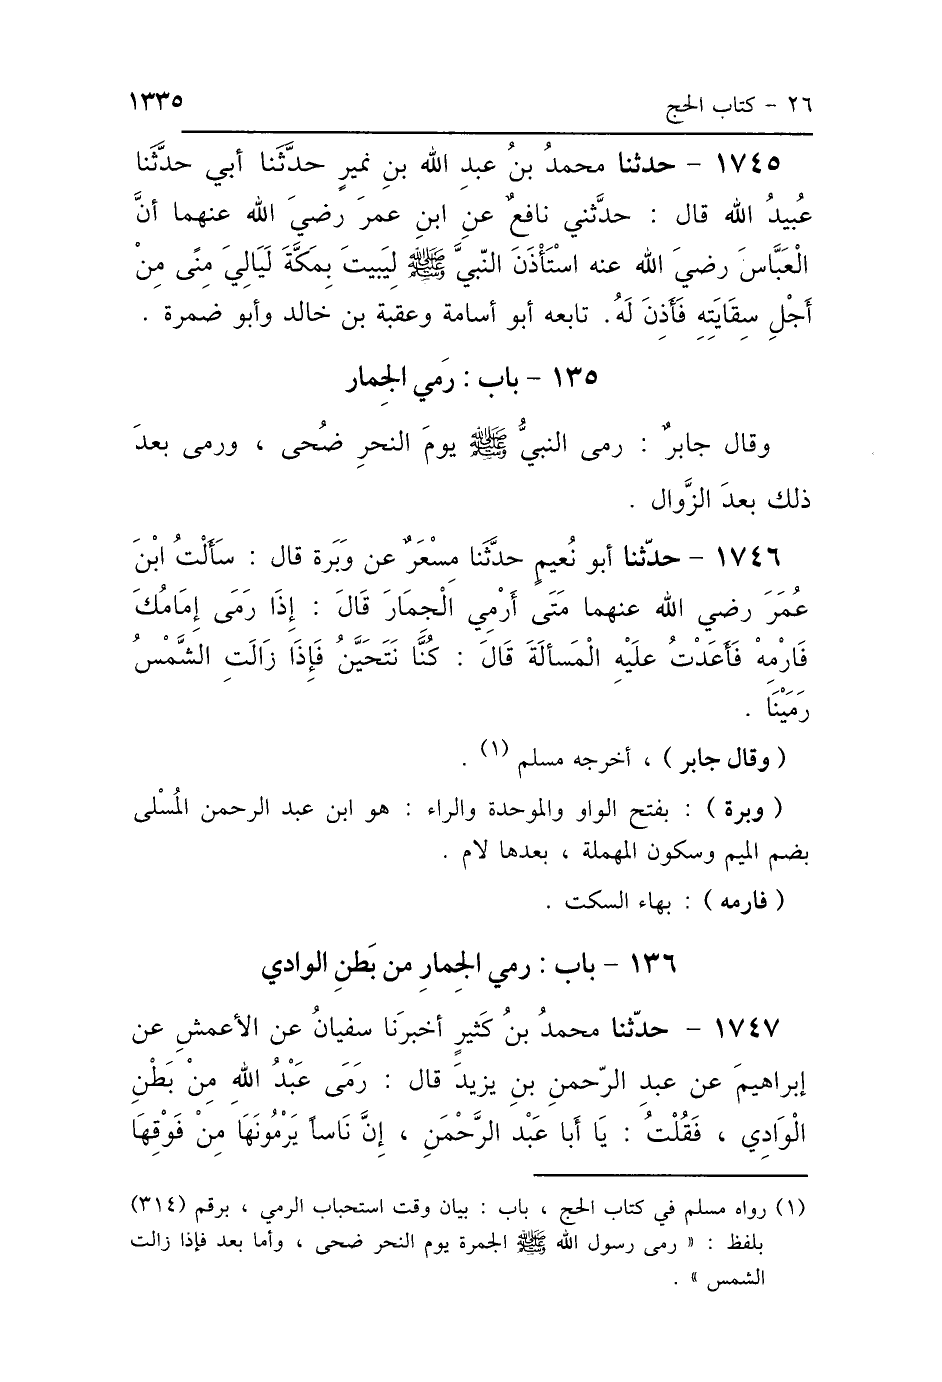 ٢٦ - كتاب الحج ١٣٣٥
١٧٤٥ - حدثنا محمدُ بنُ عبدِ الله بنِ نميرٍ حدَّثَنا أبي حدَّثَنا
عُبيدُ الله قال : حدَّثني نافعٌ عنِ ابنِ عمرَ رضيَ الله عنهما أنَّ
الْعَبَّاسَ رضيَ الله عنه اسْتَأْذَنَ النّبيَّ ﷺ لِيَبيتَ بِمَكَّةَ لَيَالِيَ مِنًى مِنْ
أَجْلِ سِقَايَتِهِ فَأَذِنَ لَهُ. تابعه أبو أسامة وعقبة بن خالد وأبو ضمرة .
١٣٥ - باب : رَمي الجِمار
وقال جابرٌ : رمى النبيُّ ﷺ يومَ النحرِ ضُحى ، ورمى بعدَ
ذلك بعدَ الزَّوال .
١٧٤٦ - حدّثنا أبو نُعيمٍ حدَّثَنا مِسْعَرٌ عن وَبَرة قال : سَأَلْتُ ابْنَ
عُمَرَ رضي الله عنهما مَتَى أَرْمِي الْجِمَارَ قَالَ : إِذَا رَمَى إِمَامُكَ
فَارْمِهْ فَأَعَدْتُ علَيْهِ الْمَسألَةَ قَالَ : كُنَّا نَتَحَيَّنُ فَإِذَا زَالَتِ الشَّمْسُ
رَمَيْنَا .
( وقال جابر ) ، أخرجه مسلم (١) .
( وبرة ) : بفتح الواو والموحدة والراء : هو ابن عبد الرحمن المُسْلى
بضم الميم وسكون المهملة ، بعدها لام .
( فارمه ) : بهاء السكت .
١٣٦ - باب : رمي الجِمارِ من بَطنِ الوادي
١٧٤٧ - حدّثنا محمدُ بنُ كَثيرٍ أخبرَنا سفيانُ عن الأعمشِ عن
إبراهيمَ عن عبد الرّحمنِ بنِ يزيدَ قال : رَمَى عَبْدُ اللهِ مِنْ بَطْنِ
الْوَادِي ، فَقُلْتُ : يَا أبا عَبْد الرَّحْمَنِ ، إنَّ نَاساً يَرْمُونَهَا مِنْ فَوْقِهَا
(١) رواه مسلم في كتاب الحج ، باب : بيان وقت استحباب الرمي ، برقم (٣١٤)
بلفظ : « رمى رسول الله ﷺ الجمرة يوم النحر ضحى ، وأما بعد فإذا زالت
الشمس » .